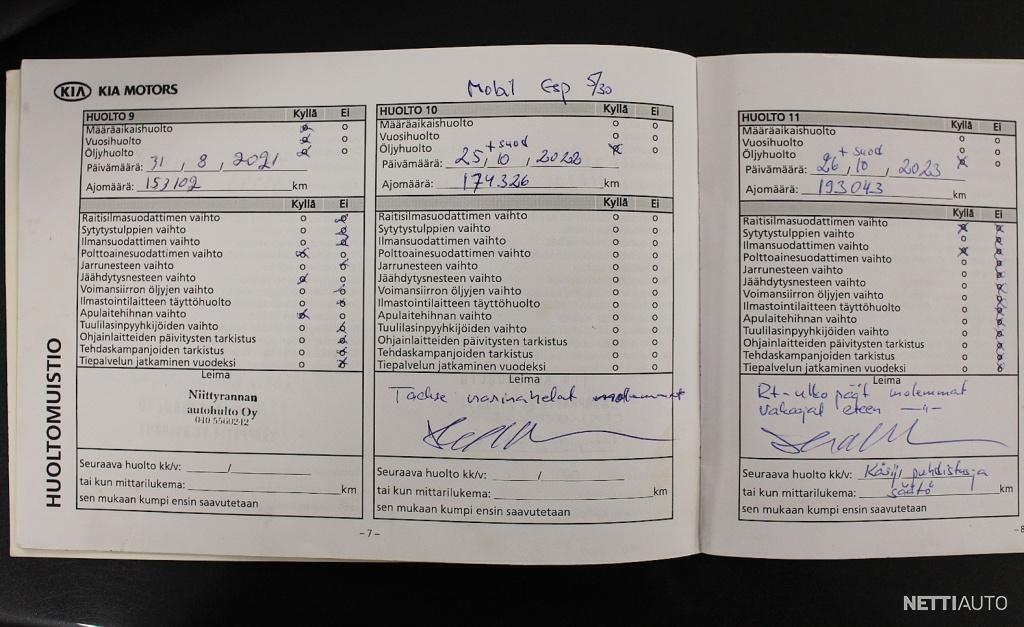 KIA KIA MOTORS
HUOLTOMUISTIO
HUOLTO 9 Kyllä Ei
Määräaikaishuolto
Vuosihuolto
Öljyhuolto
Päivämäärä: 31, 8, 2021
Ajomäärä: 153102 km
Kyllä Ei
Raitisilmasuodattimen vaihto
Sytytystulppien vaihto
Ilmansuodattimen vaihto
Polttoainesuodattimen vaihto
Jarrunesteen vaihto
Jäähdytysnesteen vaihto
Voimansiirron öljyjen vaihto
Ilmastointilaitteen täyttöhuolto
Apulaitehihnan vaihto
Tuulilasinpyyhkijöiden vaihto
Ohjainlaitteiden päivitysten tarkistus
Tehdaskampanjoiden tarkistus
Tiepalvelun jatkaminen vuodeksi
Leima
Niittyrannan
autohulto Oy
040 5560242
Seuraava huolto kk/v: /
tai kun mittarilukema: km
sen mukaan kumpi ensin saavutetaan
Mobil Esp 5/30
HUOLTO 10 Kyllä Ei
Määräaikaishuolto
Vuosihuolto
Öljyhuolto + suod
Päivämäärä: 25, 10, 2022
Ajomäärä: 174326 km
Kyllä Ei
Raitisilmasuodattimen vaihto
Sytytystulppien vaihto
Ilmansuodattimen vaihto
Polttoainesuodattimen vaihto
Jarrunesteen vaihto
Jäähdytysnesteen vaihto
Voimansiirron öljyjen vaihto
Ilmastointilaitteen täyttöhuolto
Apulaitehihnan vaihto
Tuulilasinpyyhkijöiden vaihto
Ohjainlaitteiden päivitysten tarkistus
Tehdaskampanjoiden tarkistus
Tiepalvelun jatkaminen vuodeksi
Leima
molemmat
Seuraava huolto kk/v: /
tai kun mittarilukema: km
sen mukaan kumpi ensin saavutetaan
-7-
HUOLTO 11 Kyllä Ei
Määräaikaishuolto
Vuosihuolto
Öljyhuolto + suod
Päivämäärä: 26, 10, 2023
Ajomäärä: 193043 km
Kyllä Ei
Raitisilmasuodattimen vaihto
Sytytystulppien vaihto
Ilmansuodattimen vaihto
Polttoainesuodattimen vaihto
Jarrunesteen vaihto
Jäähdytysnesteen vaihto
Voimansiirron öljyjen vaihto
Ilmastointilaitteen täyttöhuolto
Apulaitehihnan vaihto
Tuulilasinpyyhkijöiden vaihto
Ohjainlaitteiden päivitysten tarkistus
Tehdaskampanjoiden tarkistus
Tiepalvelun jatkaminen vuodeksi
Leima
Rt-ulko päät molemmat
eteen -"-
Seuraava huolto kk/v: Käsij, puhdistus ja
tai kun mittarilukema: säätö km
sen mukaan kumpi ensin saavutetaan
-8
NETTIAUTO